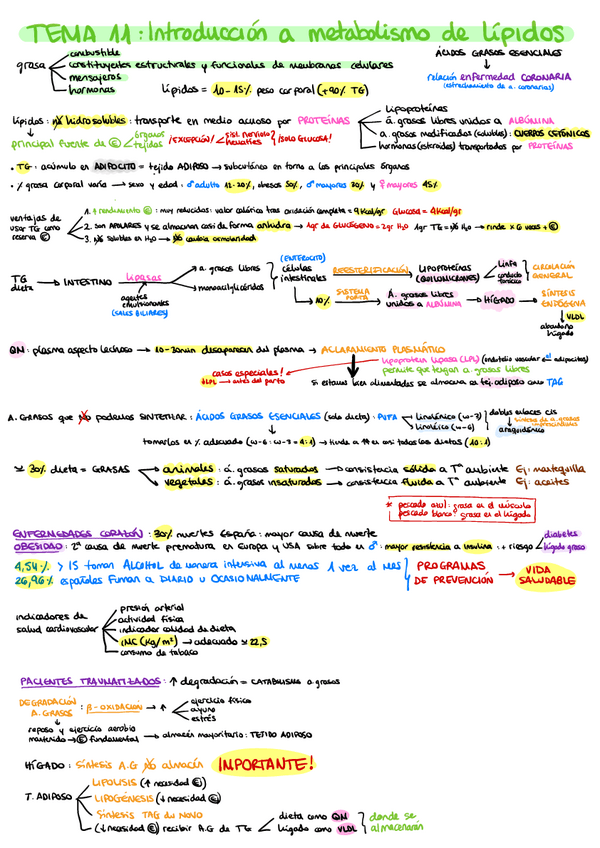 TEMA 11: Introducción a metabolismo de lípidos
grasa
combustible
constituyentes estructurales y funcionales de membranas celulares
mensajeros
hormonas
lípidos = 10-15% peso corporal (+90% TG)
ÁCIDOS GRASOS ESENCIALES
relación enfermedad CORONARIA
(estrechamiento de a. coronarias)
lípidos: no hidrosolubles: transporte en medio acuoso por PROTEÍNAS
lipoproteínas
á. grasos libres unidos a ALBÚMINA
a. grasos modificados (solubles): CUERPOS CETÓNICOS
hormonas (esteroides) transportados por PROTEÍNAS
principal fuente de E
órganos
tejidos
¡EXCEPCIÓN!
sist. nervioso
hematíes
¡SOLO GLUCOSA!
• TG: acúmulo en ADIPOCITO = tejido ADIPOSO → subcutáneo en torno a los principales órganos
• % grasa corporal varía → sexo y edad: ♂ adulto 12-20%, obesos 50%, ♂ mayores 30% y ♀ mayores 45%
ventajas de usar TG como reserva E
1. ↑ rendimiento E: muy reducidos: valor calórico tras oxidación completa = 9Kcal/gr Glucosa = 4Kcal/gr
2. son APOLARES y se almacenan casi de forma anhidra → 1gr de GLUCÓGENO = 2gr H2O 1gr TG = no H2O → rinde x 6 veces + E
3. no solubles en H2O → no cambia osmolaridad
TG dieta → INTESTINO
lipasas
agentes emulsionantes
(SALES BILIARES)
a. grasos libres
monoacilglicéridos
(ENTEROCITO)
células intestinales
REESTERIFICACIÓN
LIPOPROTEÍNAS
(QUILOMICRONES)
linfa
conducto torácico
CIRCULACIÓN GENERAL
10%
SISTEMA PORTA
Á. grasos libres unidos a ALBÚMINA
HÍGADO
SÍNTESIS ENDÓGENA
VLDL
abandona hígado
QM: plasma aspecto lechoso → 10-30min desaparecen del plasma → ACLARAMIENTO PLASMÁTICO
casos especiales!
↓LPL → antes del parto
lipoprotein lipasa (LPL) (endotelio vascular adipocitos)
permite que tengan a. grasos libres
Si estamos bien alimentados se almacena en tej. adiposo como TAG
A. GRASOS que no podemos SINTETIZAR: ÁCIDOS GRASOS ESENCIALES (solo dieta): PUFA
Linolénico (ω-3)
Linoleico (ω-6)
dobles enlaces cis
síntesis de a. grasos imprescindibles
araquidónico
tomarlos en % adecuado (ω-6: ω-3 = 4:1) → tiende a ↑ en casi todas las dietas (10:1)
≃ 30% dieta = GRASAS
animales: á. grasos saturados → consistencia sólida a Tª ambiente Ej: mantequilla
vegetales: á. grasos insaturados → consistencia fluida a Tª ambiente Ej: aceites
* pescado azul: grasa en el músculo
pescado blanco: grasa en el hígado
ENFERMEDADES CORAZÓN: 30% muertes España: mayor causa de muerte
OBESIDAD: 2ª causa de muerte prematura en Europa y USA sobre todo en ♂: mayor resistencia a insulina: + riesgo
diabetes
hígado graso
4,54% > 15 toman ALCOHOL de manera intensiva al menos 1 vez al mes
26,96% españoles Fuman a DIARIO u OCASIONALMENTE
PROGRAMAS DE PREVENCIÓN → VIDA SALUDABLE
indicadores de salud cardiovascular
presión arterial
actividad física
indicador calidad de dieta
IMC (Kg/m²) → adecuado ≃ 22,5
consumo de tabaco
PACIENTES TRAUMATIZADOS: ↑ degradación = CATABOLISMO a grasos
DEGRADACIÓN A. GRASOS: β-OXIDACIÓN → ↑
ejercicio físico
ayuno
estrés
reposo y ejercicio aerobio mantenido → E fundamental → almacén mayoritario: TEJIDO ADIPOSO
HÍGADO: Síntesis A.G no almacén IMPORTANTE!
T. ADIPOSO
LIPOLISIS (↑ necesidad E)
LIPOGÉNESIS (↓ necesidad E)
Síntesis TAG de novo
(↓ necesidad E) recibir A.G de TG
dieta como QM
hígado como VLDL
donde se almacenarán